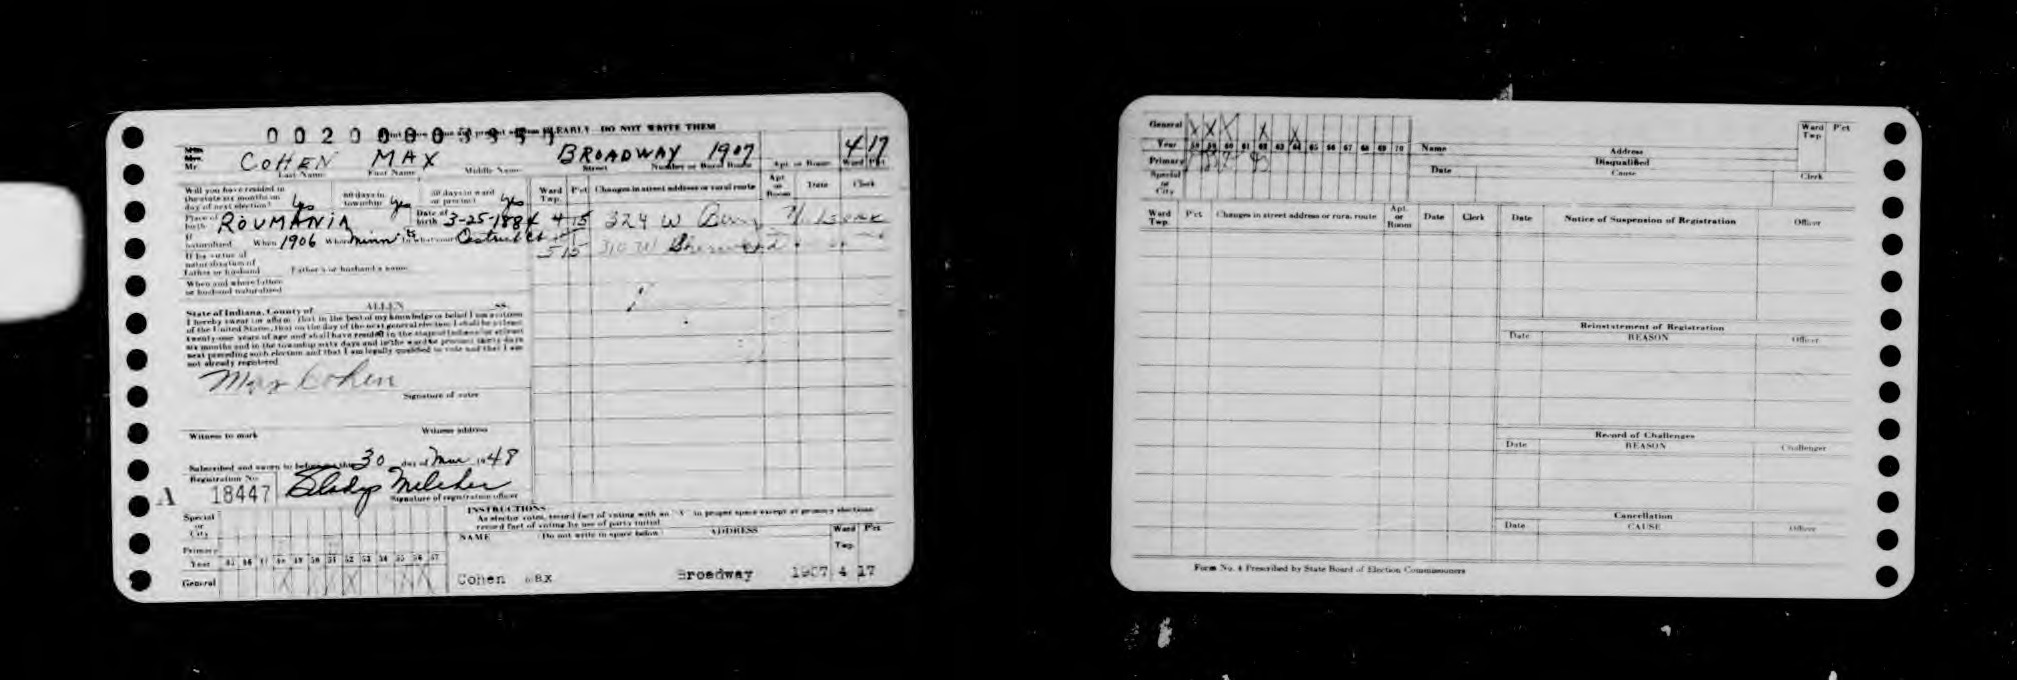 0 0 2 0 0 0 0 3 9 5 9
CLEARLY DO NOT WRITE THEM
COHEN MAX BROADWAY 1907 4 17
Mr. Last Name First Name Middle Name Street Number or Rural Route Apt. or Room Ward Pct
Will you have resided in the state six months on day of next election? Yes
60 days in township Yes
30 days in ward or precinct Yes
Place of birth ROUMANIA Date of birth 3-25-1884
If naturalized When 1906 Where Minn In what court District Ct
If by virtue of naturalization of Father or husband Father's or husband's name
When and where father or husband naturalized
Ward Twp. Pct Changes in street address or rural route Apt. or Room Date Clerk
4 15 324 W
5 15 310 W Sherwood
ALLEN
State of Indiana, County of ss.
I hereby swear (or affirm) that to the best of my knowledge or belief I am a citizen
of the United States, that on the day of the next general election I shall be at least
twenty-one years of age and shall have resided in the state of Indiana for at least
six months and in the township sixty days and in the ward or precinct thirty days
next preceding such election and that I am legally qualified to vote and that I am
not already registered
Max Cohen
Signature of voter
Witness to mark Witness address
Subscribed and sworn to before me this 30 day of Mar 1948
Registration No.
A 18447 Gladys Melcher
Signature of registration officer
INSTRUCTIONS
As elector votes, record fact of voting with an "X" in proper space except at primary elections
record fact of voting by use of party initial
Special or City
Primary
Year 45 46 47 48 49 50 51 52 53 54 55 56 57
General X X X X X
NAME (Do not write in space below) ADDRESS Ward Twp. Pct
Cohen Max Broadway 1907 4 17
General X X X X X
Year 58 59 60 61 62 63 64 65 66 67 68 69 70
Primary
Special or City
Name Address
Disqualified
Date Cause Clerk
Ward Twp Pct
Ward Twp. Pct Changes in street address or rural route Apt. or Room Date Clerk
Date Notice of Suspension of Registration Officer
Reinstatement of Registration
Date REASON Officer
Record of Challenges
Date REASON Challenger
Cancellation
Date CAUSE Officer
Form No. 4 Prescribed by State Board of Election Commissioners